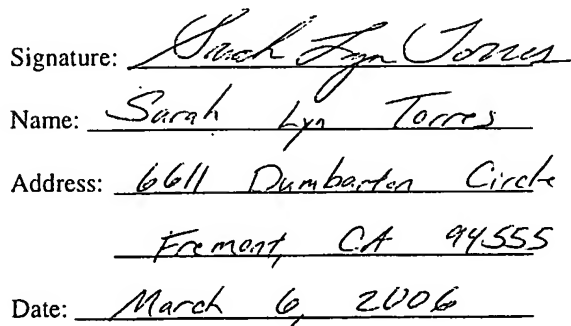 Signature: Sarah Lyn Torres
Name: Sarah Lyn Torres
Address: 6611 Dumbarton Circle
Fremont, CA 94555
Date: March 6, 2006